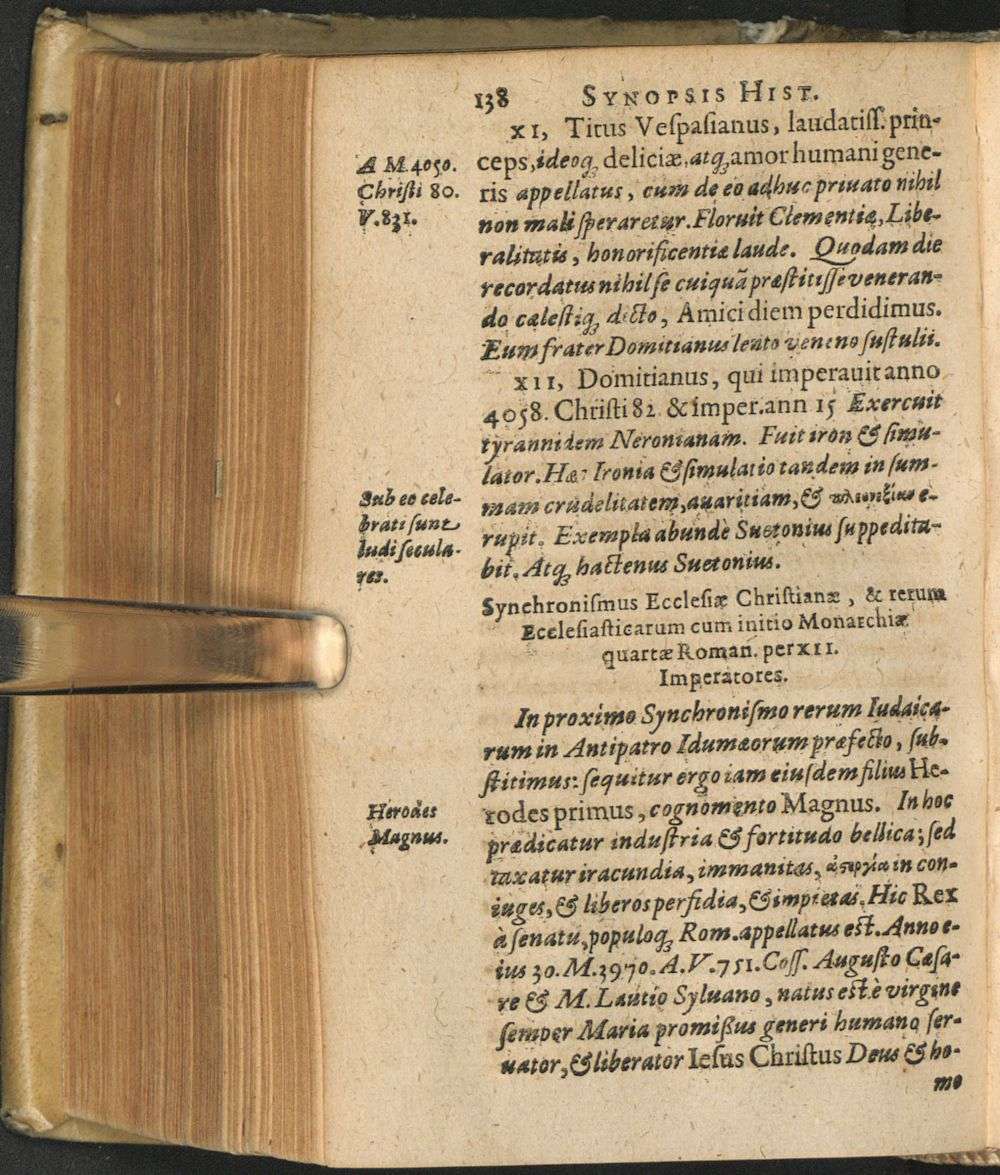 138 SYNOPSIS HIST.
XI, Titus Veſpaſianus, laudatiſſ. prin-
ceps, ideoq́; deliciæ, atq́; amor humani gene-
ris appellatus, cum de eo adhuc priuato nihil
non mali ſperaretur. Floruit Clementiæ, Libe-
ralitatis, honorificentiæ laude. Quodam die
recordatus nihil ſe cuiquā præſtitiſſe veneran-
do cæleſtiq́; dicto, Amici diem perdidimus.
Eum frater Domitianus lento veneno ſuſtulit.
XII, Domitianus, qui imperauit anno
4058. Chriſti 82 & imper. ann 15 Exercuit
tyrannidem Neronianam. Fuit iron & ſimu-
lator. Hæ: Ironia & ſimulatio tandem in ſum-
mam crudelitatem, auaritiam, & πλεονεξίαν e-
rupit. Exempla abundè Suetonius ſuppedita-
bit. Atq́; hactenus Suetonius.
A M. 4050.
Chriſti 80.
V. 831.
Sub eo cele-
brati ſunt
ludi ſecula-
res.
Synchroniſmus Eccleſiæ Chriſtianæ, & rerum
Eccleſiaſticarum cum initio Monarchiæ
quartæ Roman. per XII.
Imperatores.
In proximo Synchroniſmo rerum Iudaica-
rum in Antipatro Idumæorum præfecto, ſub-
ſtitimus: ſequitur ergo iam eiuſdem filius He-
rodes primus, cognomento Magnus. In hoc
prædicatur induſtria & fortitudo bellica; ſed
taxatur iracundia, immanitas, in con-
iuges, & liberos perfidia, & impietas. Hic Rex
à ſenatu, populoq́; Rom. appellatus eſt. Anno e-
ius 30. M. 3970. A. V. 751. Coſſ. Auguſto Cæſa-
re & M. Lautio Syluano, natus eſt è virgine
ſemper Maria promißus generi humano ſer-
uator, & liberator Ieſus Chriſtus Deus & ho-
mo
Herodes
Magnus.